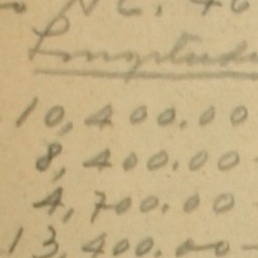 Longitude
10,400.00
8,400.00
4,700.00
13,400.00